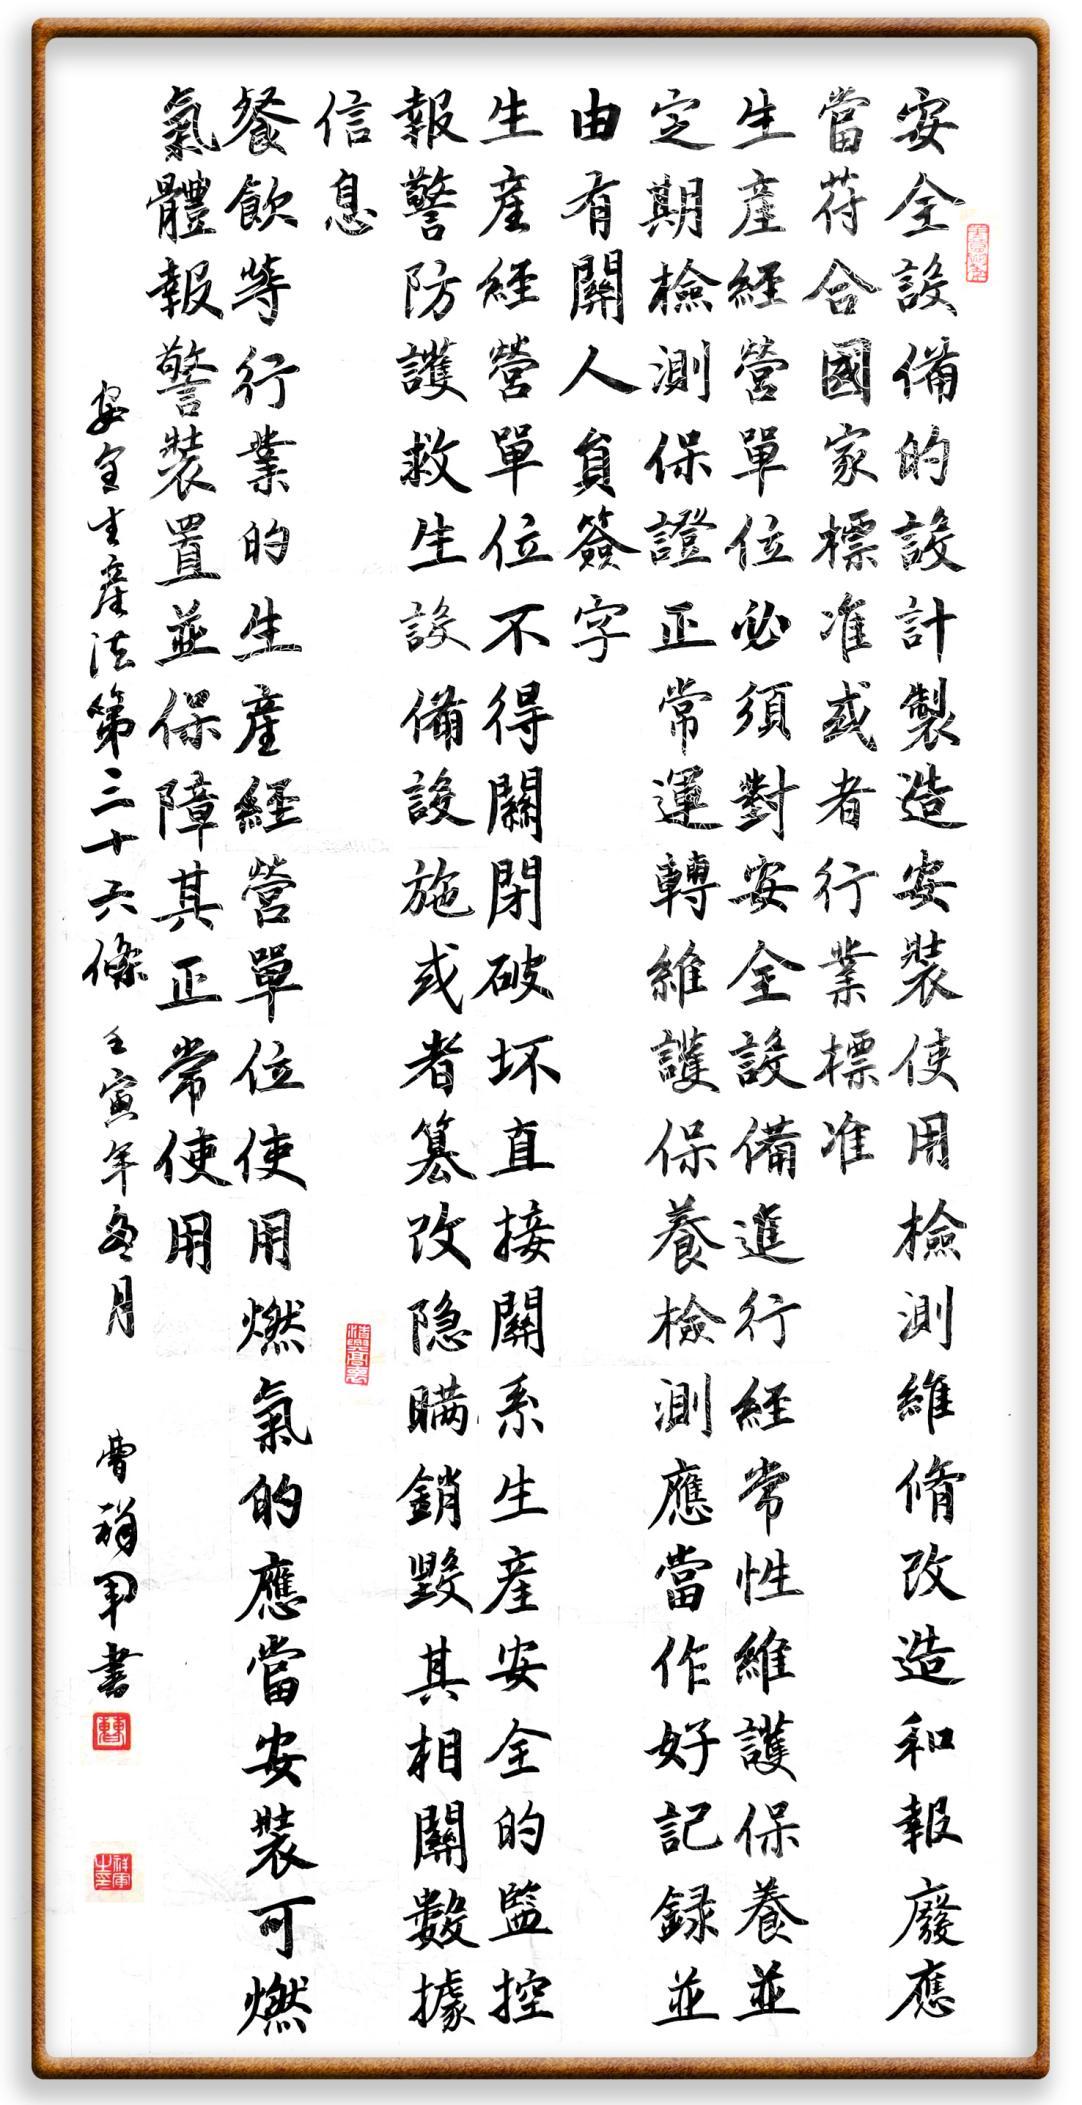 安全設備的設計製造安裝使用檢測維脩改造和報廢應
當苻合國家標准或者行業標准
生產經營單位必須對安全設備進行經常性維護保養並
定期檢測保證正常運轉維護保養檢測應當作好記録並
由有關人員簽字
生產經營單位不得關閉破坏直接關系生產安全的監控
報警防護救生設備設施或者篡改隐瞒銷毀其相關數據
信息
餐飲等行業的生產經營單位使用燃氣的應當安裝可燃
氣體報警裝置並保障其正常使用
安全生產法第三十六條 壬寅年冬月 曹祥軍書